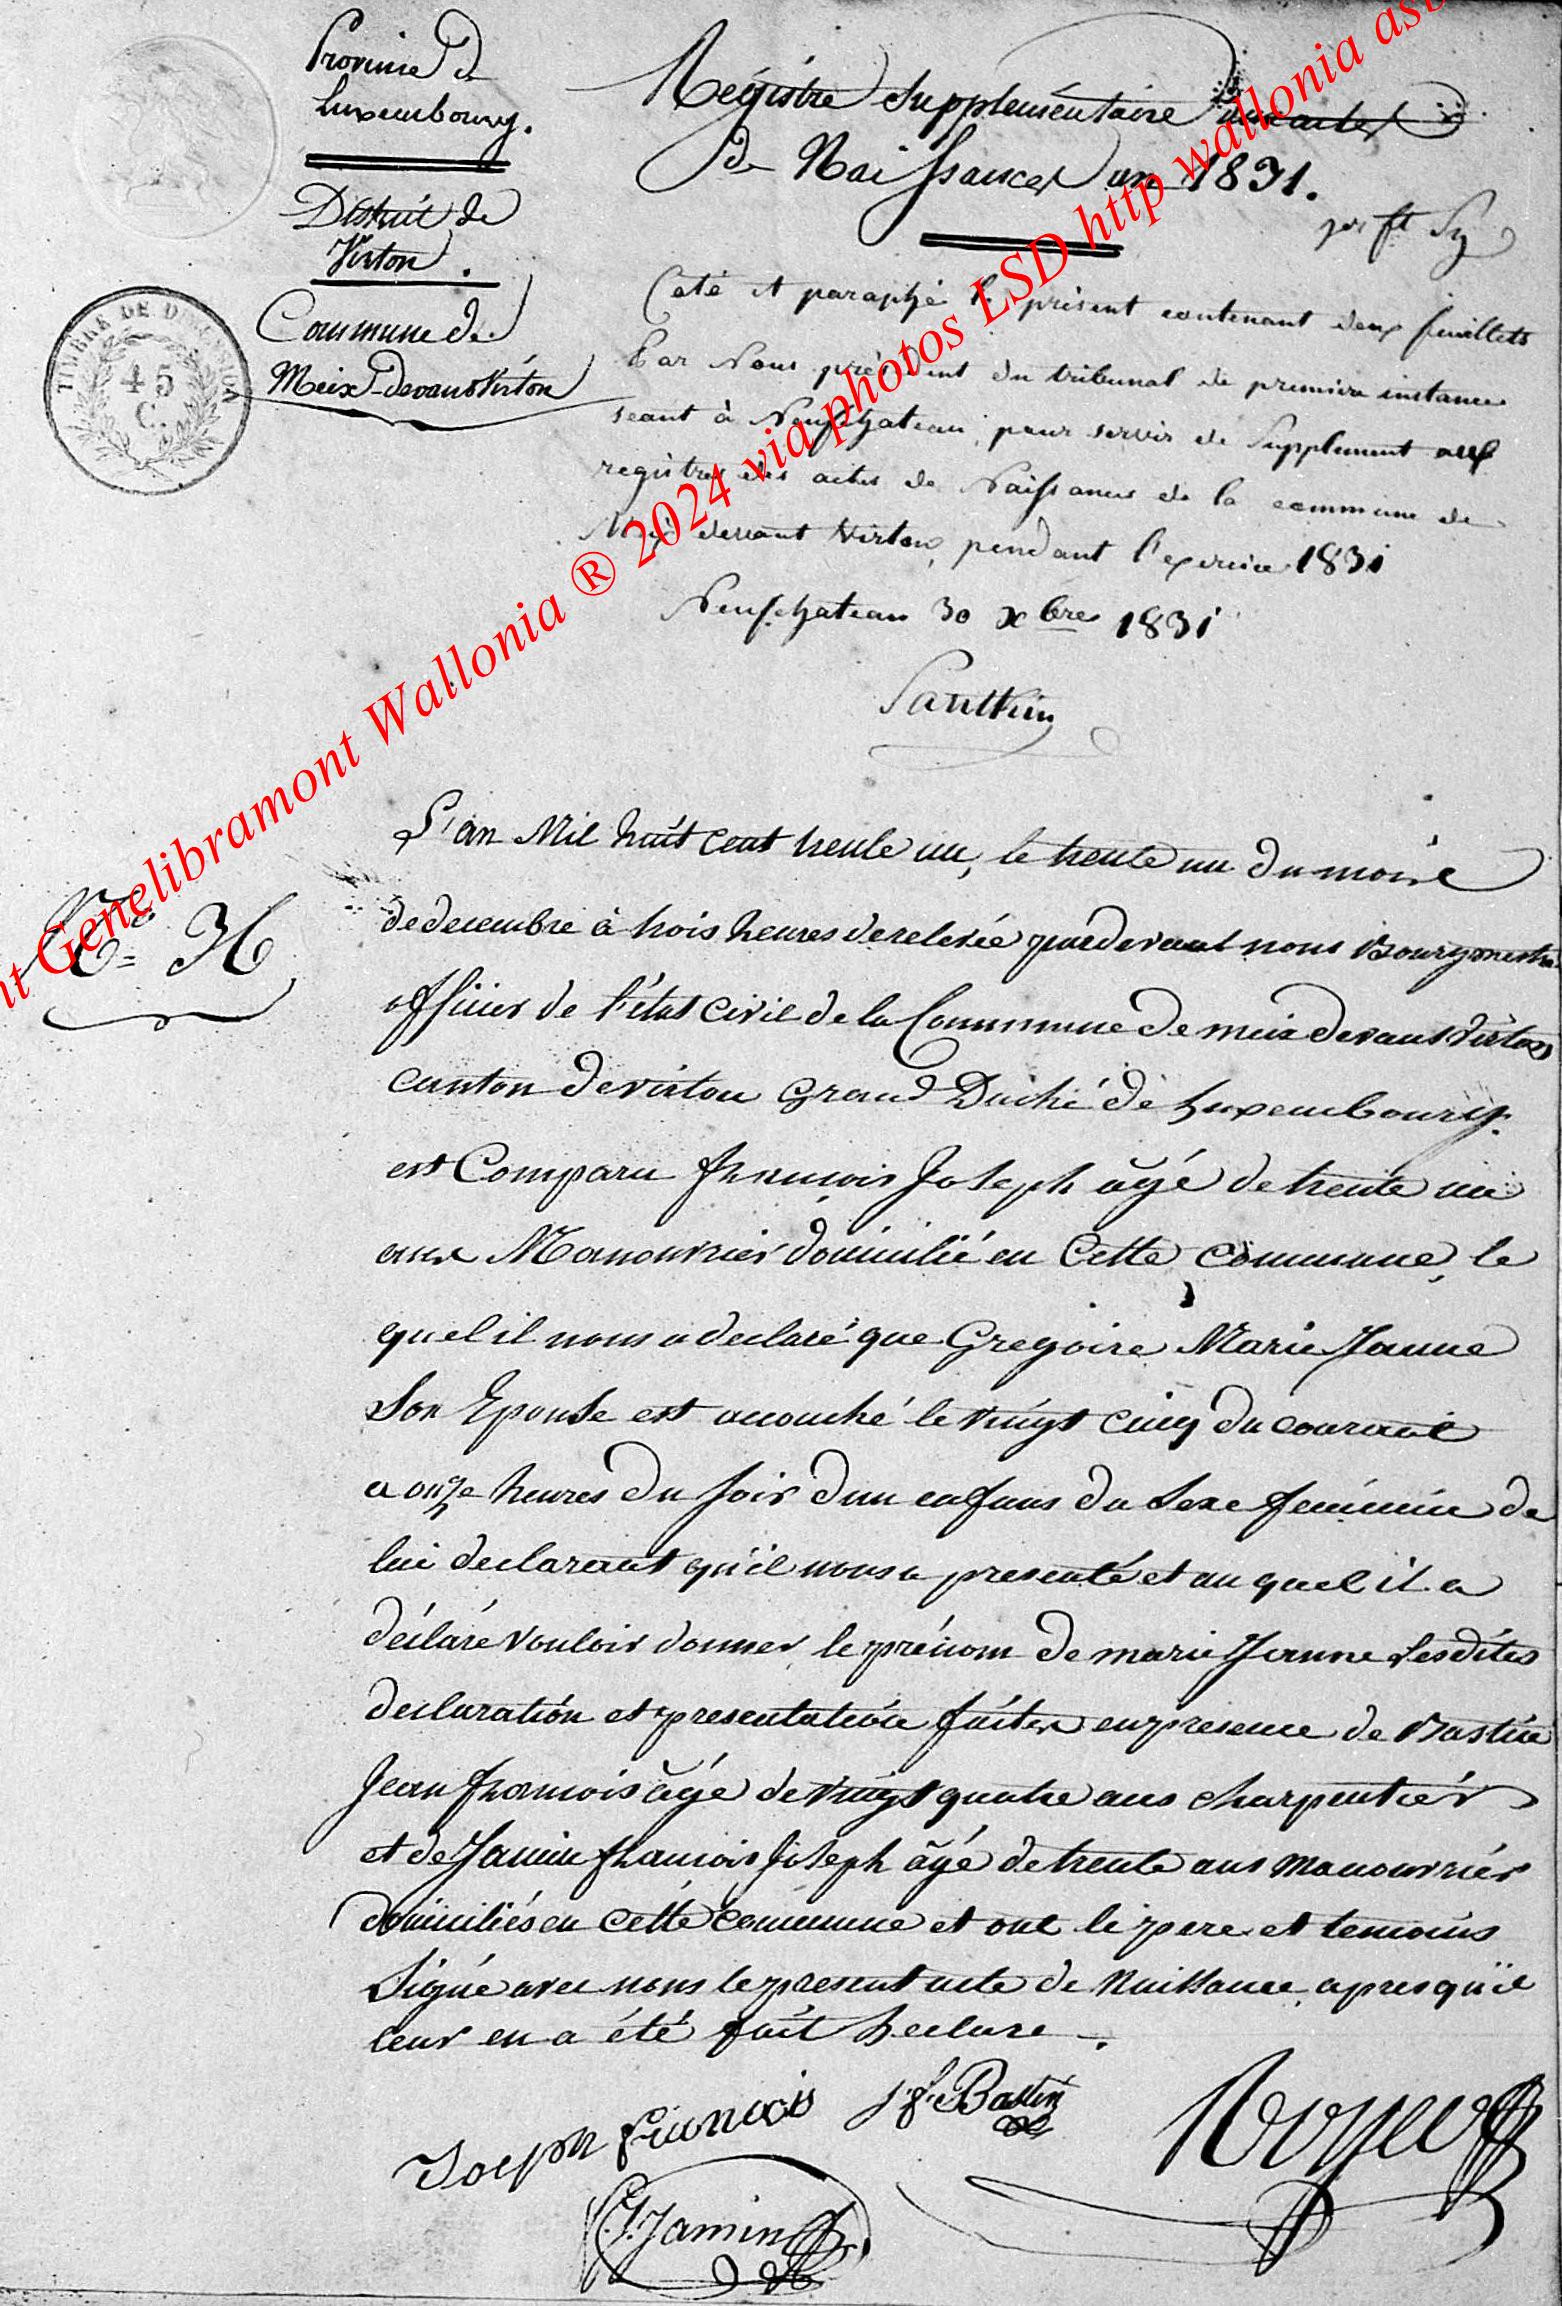 Province de
Luxembourg.
District de
Virton.
Commune de
Meix-devant Virton
TIMBRE DE DIMENSION
45
C.
Régistre Supplémentaire
de Naissances an 1831.
Coté et paraphé le présent contenant deux feuillets
Par Nous président du tribunal de première instance
seant à Neufchateau, pour servir de Supplement aux
registres des actes de Naissances de la commune de
devant Virton, pendant l'exercice 1831
Neufchateau 30 xbre 1831
L'an Mil huit cent trente un, le trente un du mois
de decembre à trois heures de relevée pardevant nous Bourgmestre
officier de l'état civil de la Commune de meix devant Virton
canton de virton Grand Duché de Luxembourg.
est Comparu françois Joseph âgé de trente un
ans Manouvrier domicilié en Cette Commune, le
quel il nous a declaré que Gregoire Marie Jeanne
Son Epouse est accouché le vingt cinq du courant
a onze heures du soir d'un enfant du Sexe feminin de
lui declarant qu'il nous a presenté et au quel il a
déclaré vouloir donner le prénom de marie Jeanne Lesdites
declaration et presentation faites en presence de Bastin
Jean françois âgé de vingt quatre ans charpentier
et de Jamin françois Joseph âgé de trente ans manouvrier
domiciliés en cette commune et ont le pere et temoins
Signé avec nous le present acte de Naissance, apres qu'il
leur en a été fait lecture.
Joseph francois
J f Bastin
f. J. Jamin
nt Genelibramont Wallonia ® 2024 via photos LSD http wallonia asb